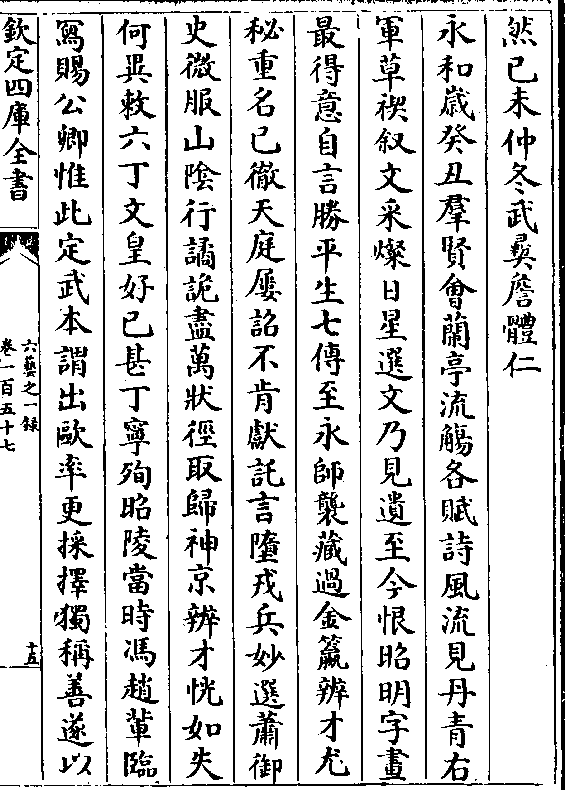 然已未仲冬武㢲詹體仁
永和嵗癸丑羣賢㑹蘭亭流觴各賦詩風流見丹青右
軍草禊叙文采燦日星選文乃見遺至今恨昭明字畫
最得意自言勝平生七傳至永師襲藏過金籯辨才尤
秘重名已徹天庭屢詔不肯獻託言墮戎兵妙選蕭御
史微服山隂行譎詭盡萬狀徑取歸神京辨才恍如失
何異敕六丁文皇好已甚丁寧殉昭陵當時馮趙輩臨
寫賜公卿惟此定武本謂出歐率更採擇獨稱善遂以
欽定四庫全書
六藝之一録
卷一百五十七
十五